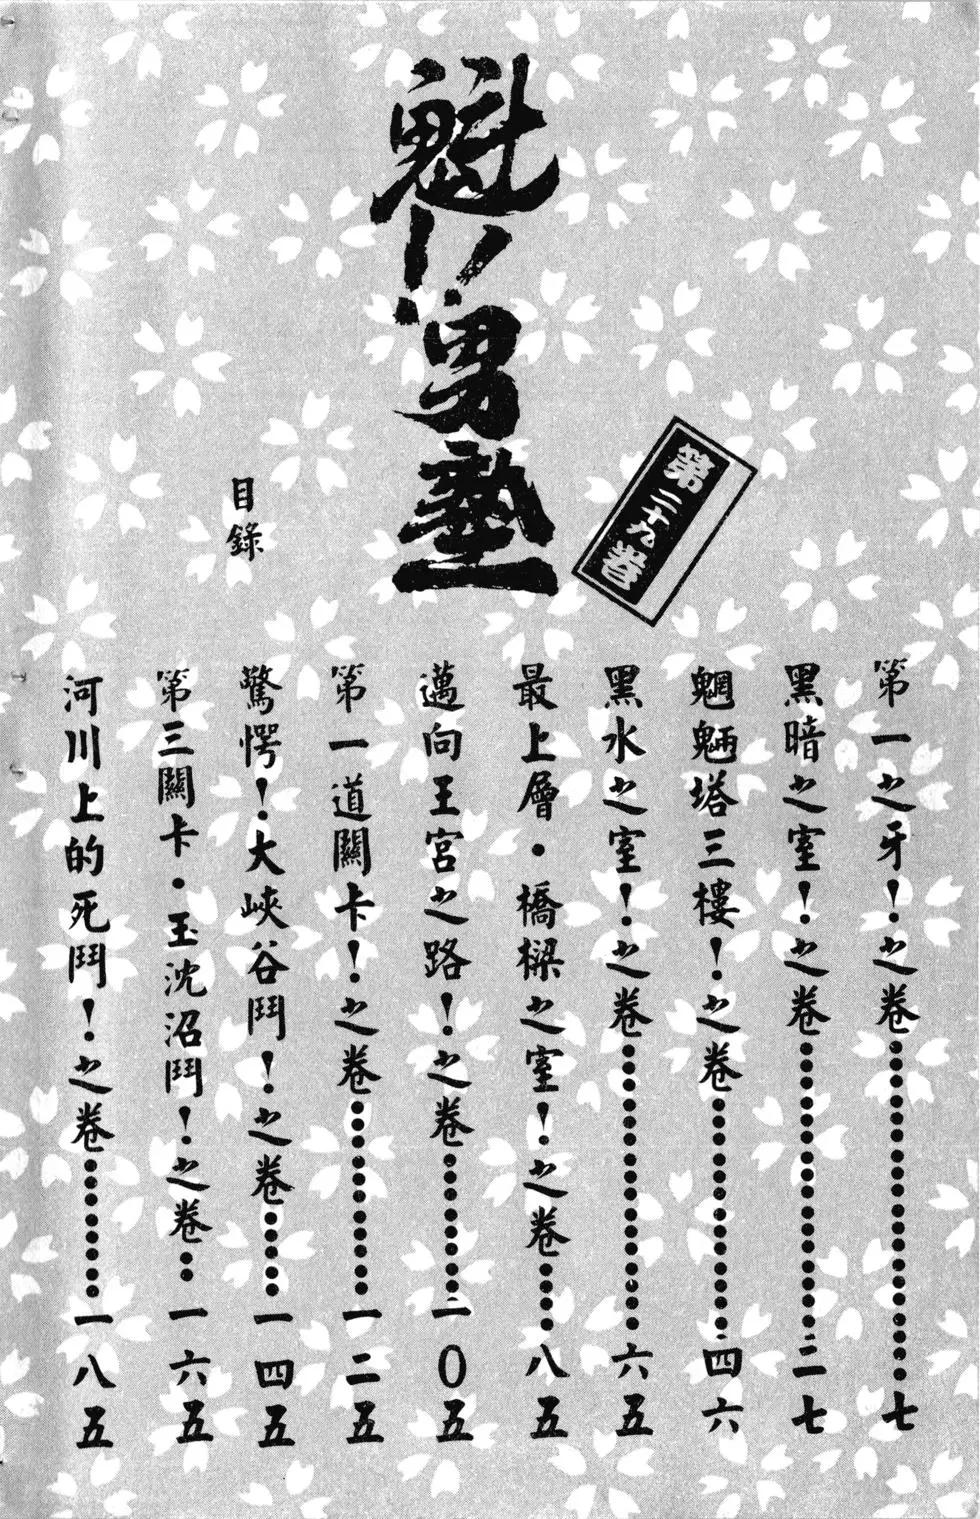 魁!!男塾
第二十九卷
目錄
第一之牙!之卷………七
黑暗之室!之卷………二七
魍魎塔三樓!之卷………四六
黑水之室!之卷………六五
最上層・橋樑之室!之卷………八五
邁向王宮之路!之卷………一〇五
第一道關卡!之卷………一二五
驚愕!大峽谷鬥!之卷………一四五
第三關卡・玉沈沼鬥!之卷………一六五
河川上的死鬥!之卷………一八五